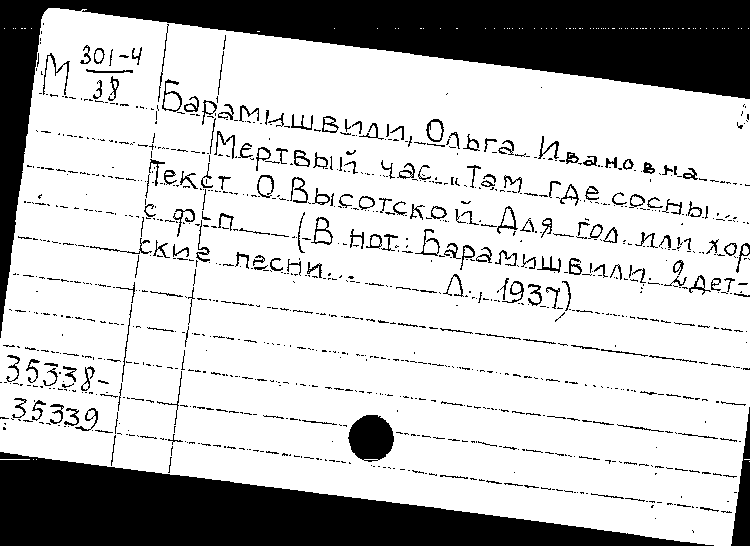 М 301-4
38
Барамишвили, Ольга Ивановна
Мертвый час. „Там где сосны...
Текст О. Высотской. Для гол. или хор
с ф-п. (В нот.: Барамишвили. 2 дет-
ские песни... Л., 1937)
35338-
35339